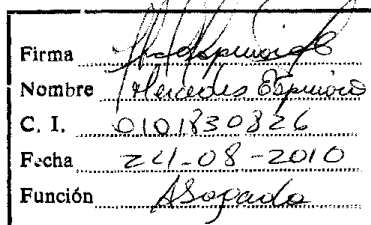 Firma
Nombre Mercedes Espinoza
C. I. 0101830826
Fecha 24-08-2010
Función Abogada